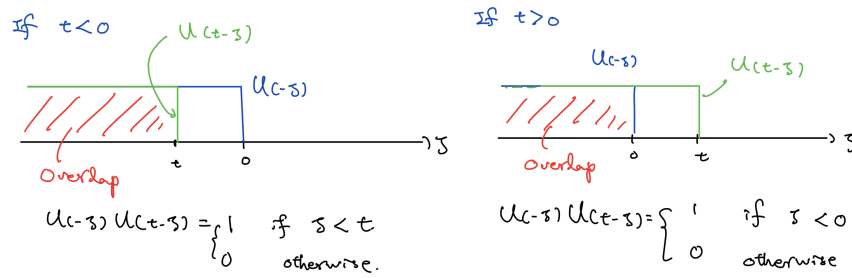 If t<0
U(t-ζ)
U(-ζ)
t
0
ζ
Overlap
U(-ζ) U(t-ζ) = { 1 if ζ < t
0 otherwise.
If t>0
U(-ζ)
U(t-ζ)
0
t
ζ
Overlap
U(-ζ) U(t-ζ) = { 1 if ζ < 0
0 otherwise